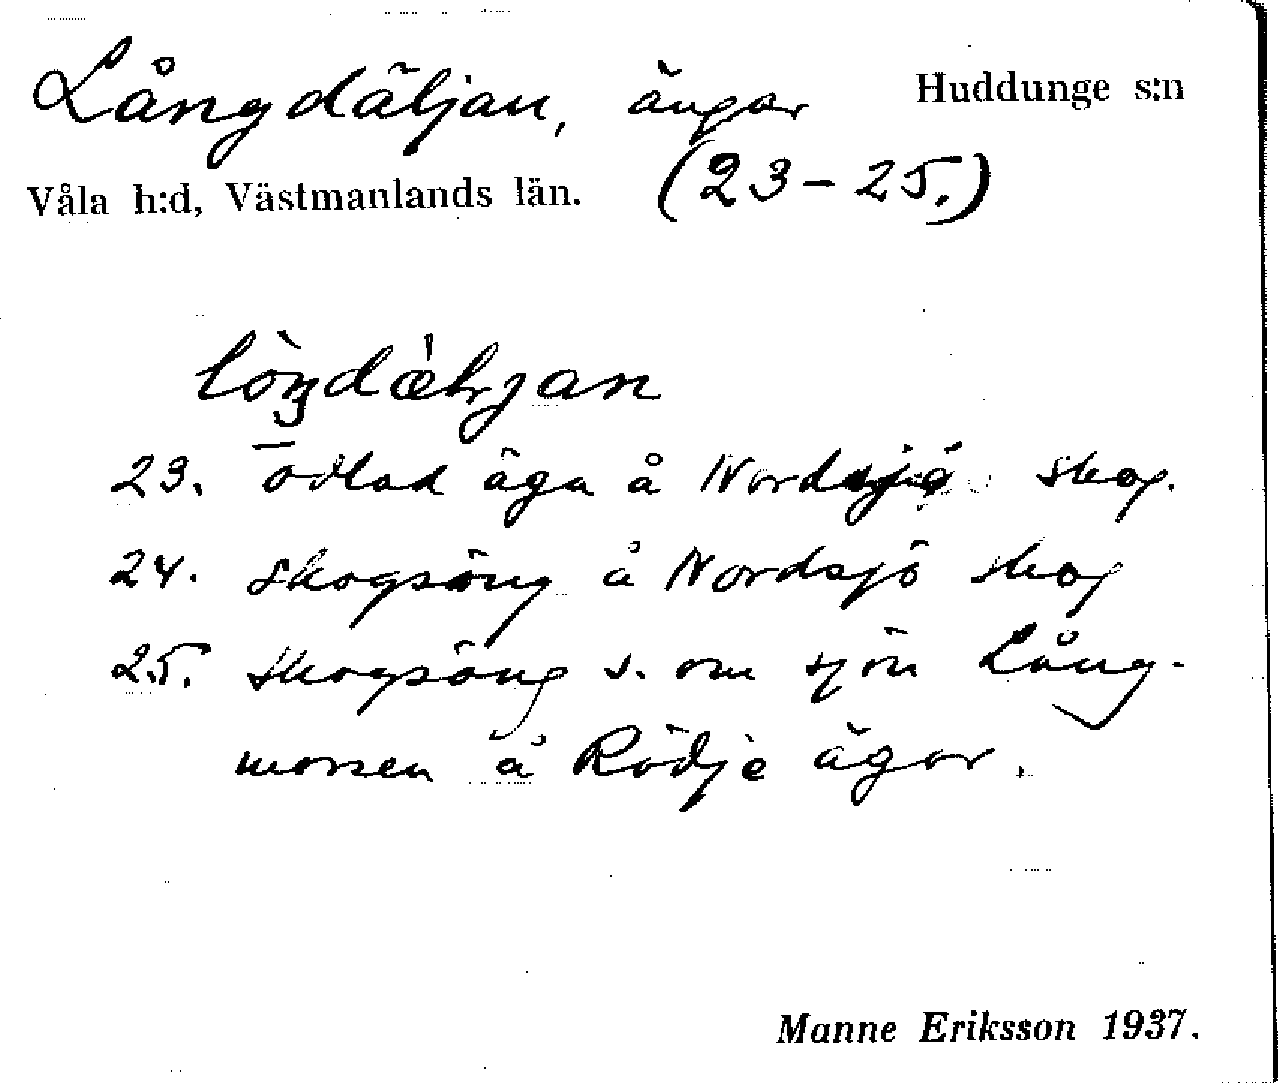 Långdäljan, ängar Huddunge s:n
Våla h:d, Västmanlands län. (23-25.)
23. Odlad äga å Nordsjö skog.
24. Skogsäng å Nordsjö skog
25. Skogsäng s. om sjön Lång-
morsen å Rödje ägor.
Manne Eriksson 1937.